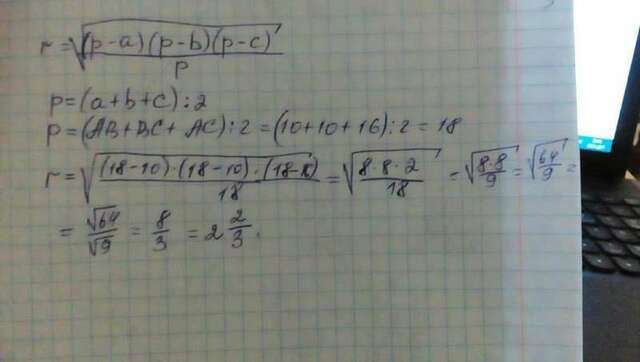 r=√((p-a)(p-b)(p-c)/p)
p=(a+b+c):2
p=(AB+BC+AC):2=(10+10+16):2=18
r=√((18-10)·(18-10)·(18-16)/18)=√(8·8·2/18)=√(8·8/9)=√(64/9)=
=√64/√9=8/3=2 2/3.